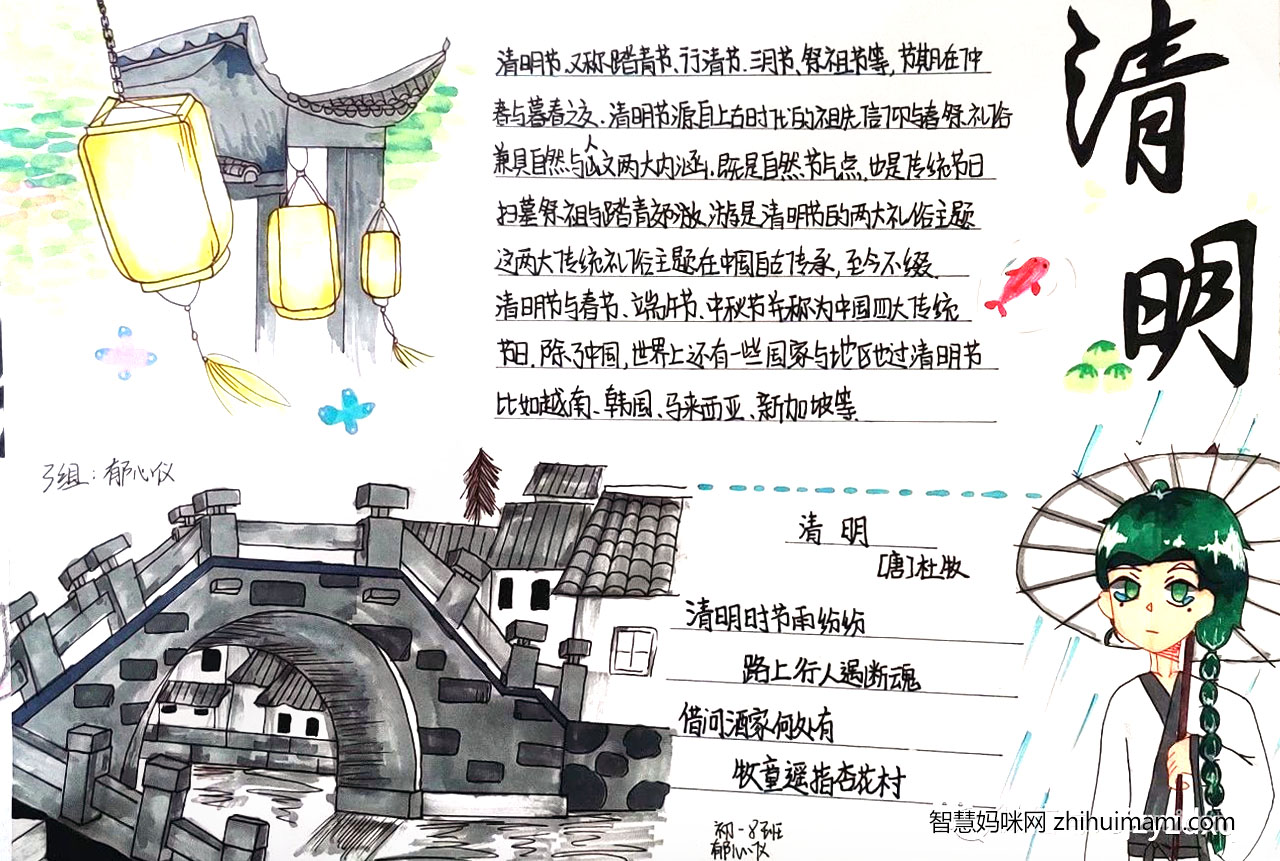 清明
清明节、又称踏青节、行清节、三月节、祭祖节等,节期在仲
春与暮春之交、清明节源自上古时代的祖先信仰与春祭礼俗
兼具自然与人文两大内涵,既是自然节气点,也是传统节日
扫墓祭祖与踏青郊游是清明节的两大礼俗主题
这两大传统礼俗主题在中国自古传承,至今不缀.
清明节与春节、端午节、中秋节并称为中国四大传统
节日.除了中国,世界上还有一些国家与地区也过清明节
比如越南、韩国、马来西亚、新加坡等.
3组:郁心仪
清 明
[唐]杜牧
清明时节雨纷纷
路上行人遇断魂
借问酒家何处有
牧童遥指杏花村
初一8班
郁心仪
智慧妈咪网 zhihuimami.com